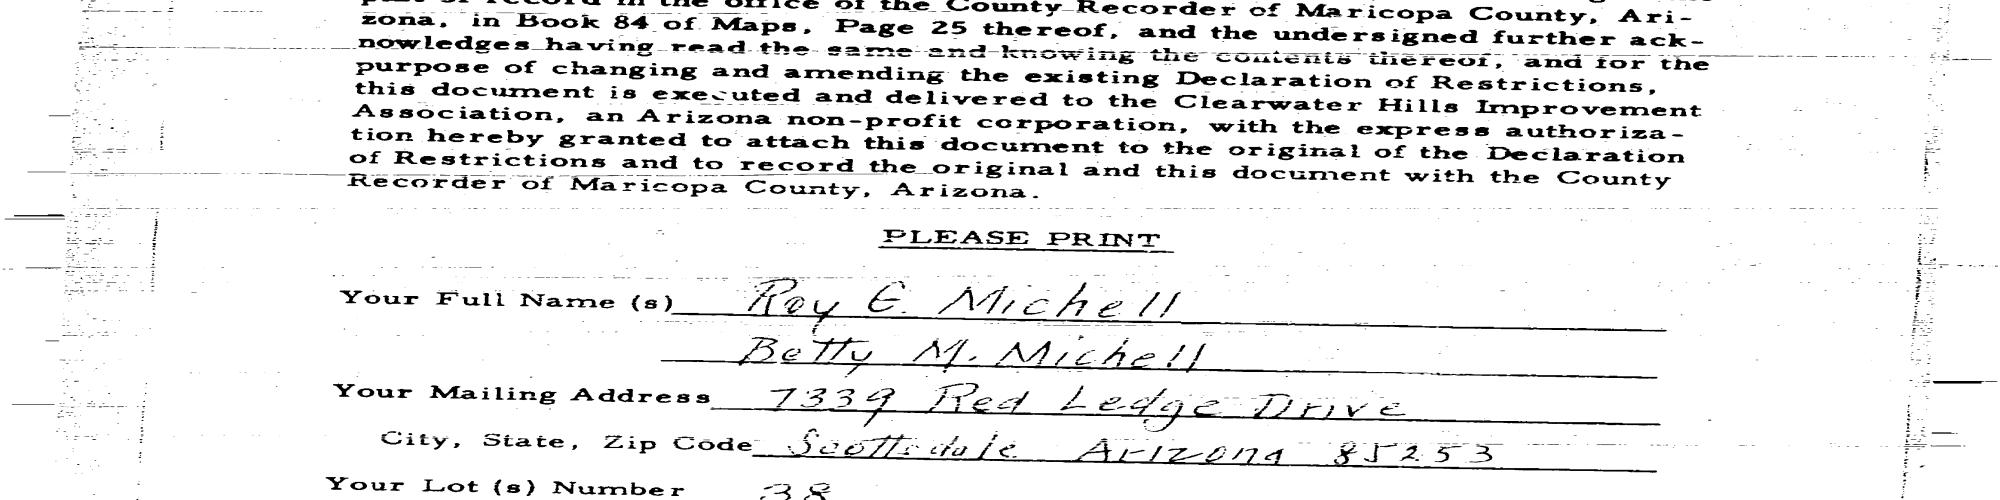 of record in the office of the County Recorder of Maricopa County, Ari-
zona, in Book 84 of Maps, Page 25 thereof, and the undersigned further ack-
nowledges having read the same and knowing the contents thereof, and for the
purpose of changing and amending the existing Declaration of Restrictions,
this document is executed and delivered to the Clearwater Hills Improvement
Association, an Arizona non-profit corporation, with the express authoriza-
tion hereby granted to attach this document to the original of the Declaration
of Restrictions and to record the original and this document with the County
Recorder of Maricopa County, Arizona.
PLEASE PRINT
Your Full Name (s) Roy E. Michell
Betty M. Michell
Your Mailing Address 7339 Red Ledge Drive
City, State, Zip Code Scottsdale Arizona 85253
Your Lot (s) Number 38